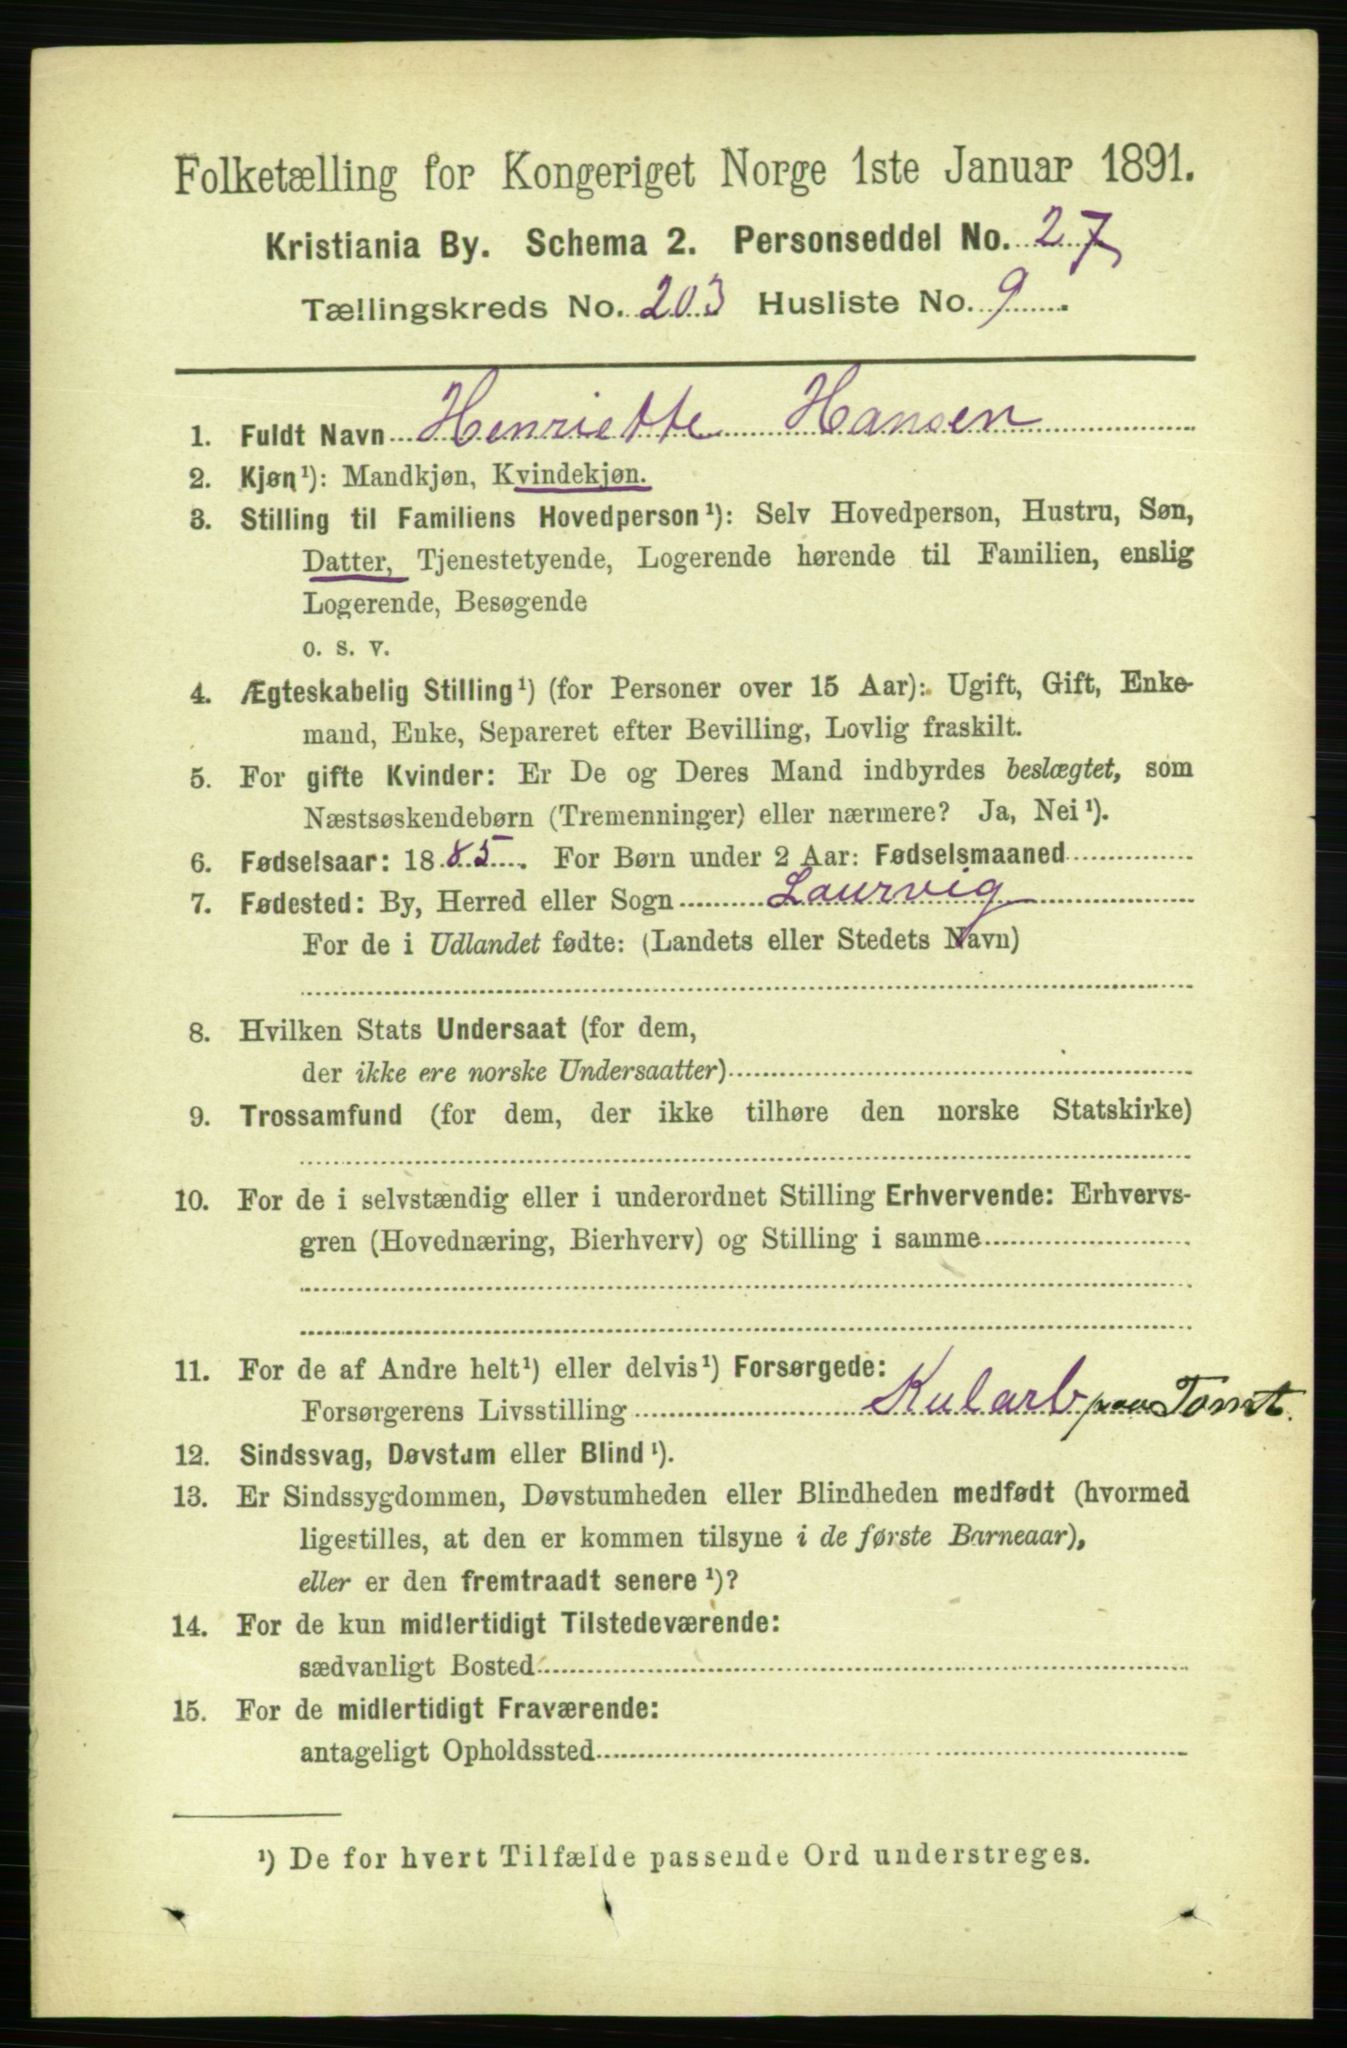 Folketælling for Kongeriget Norge 1ste Januar 1891.
Kristiania By. Schema 2. Personseddel No. 27
Tællingskreds No. 203 Husliste No. 9.
1. Fuldt Navn Henriette Hansen
2. Kjøn¹): Mandkjøn, Kvindekjøn.
3. Stilling til Familiens Hovedperson¹): Selv Hovedperson, Hustru, Søn,
Datter, Tjenestetyende, Logerende hørende til Familien, enslig
Logerende, Besøgende
o. s. v.
4. Ægteskabelig Stilling¹) (for Personer over 15 Aar): Ugift, Gift, Enke-
mand, Enke, Separeret efter Bevilling, Lovlig fraskilt.
5. For gifte Kvinder: Er De og Deres Mand indbyrdes beslægtet, som
Næstsøskendebørn (Tremenninger) eller nærmere? Ja, Nei¹).
6. Fødselsaar: 1885. For Børn under 2 Aar: Fødselsmaaned
7. Fødested: By, Herred eller Sogn Laurvig
For de i Udlandet fødte: (Landets eller Stedets Navn)
8. Hvilken Stats Undersaat (for dem,
der ikke ere norske Undersaatter)
9. Trossamfund (for dem, der ikke tilhøre den norske Statskirke)
10. For de i selvstændig eller i underordnet Stilling Erhvervende: Erhvervs-
gren (Hovednæring, Bierhverv) og Stilling i samme
11. For de af Andre helt¹) eller delvis¹) Forsørgede:
Forsørgerens Livsstilling Kularb paa Tomt.
12. Sindssvag, Døvstum eller Blind¹).
13. Er Sindssygdommen, Døvstumheden eller Blindheden medfødt (hvormed
ligestilles, at den er kommen tilsyne i de første Barneaar),
eller er den fremtraadt senere¹)?
14. For de kun midlertidigt Tilstedeværende:
sædvanligt Bosted
15. For de midlertidigt Fraværende:
antageligt Opholdssted
¹) De for hvert Tilfælde passende Ord understreges.